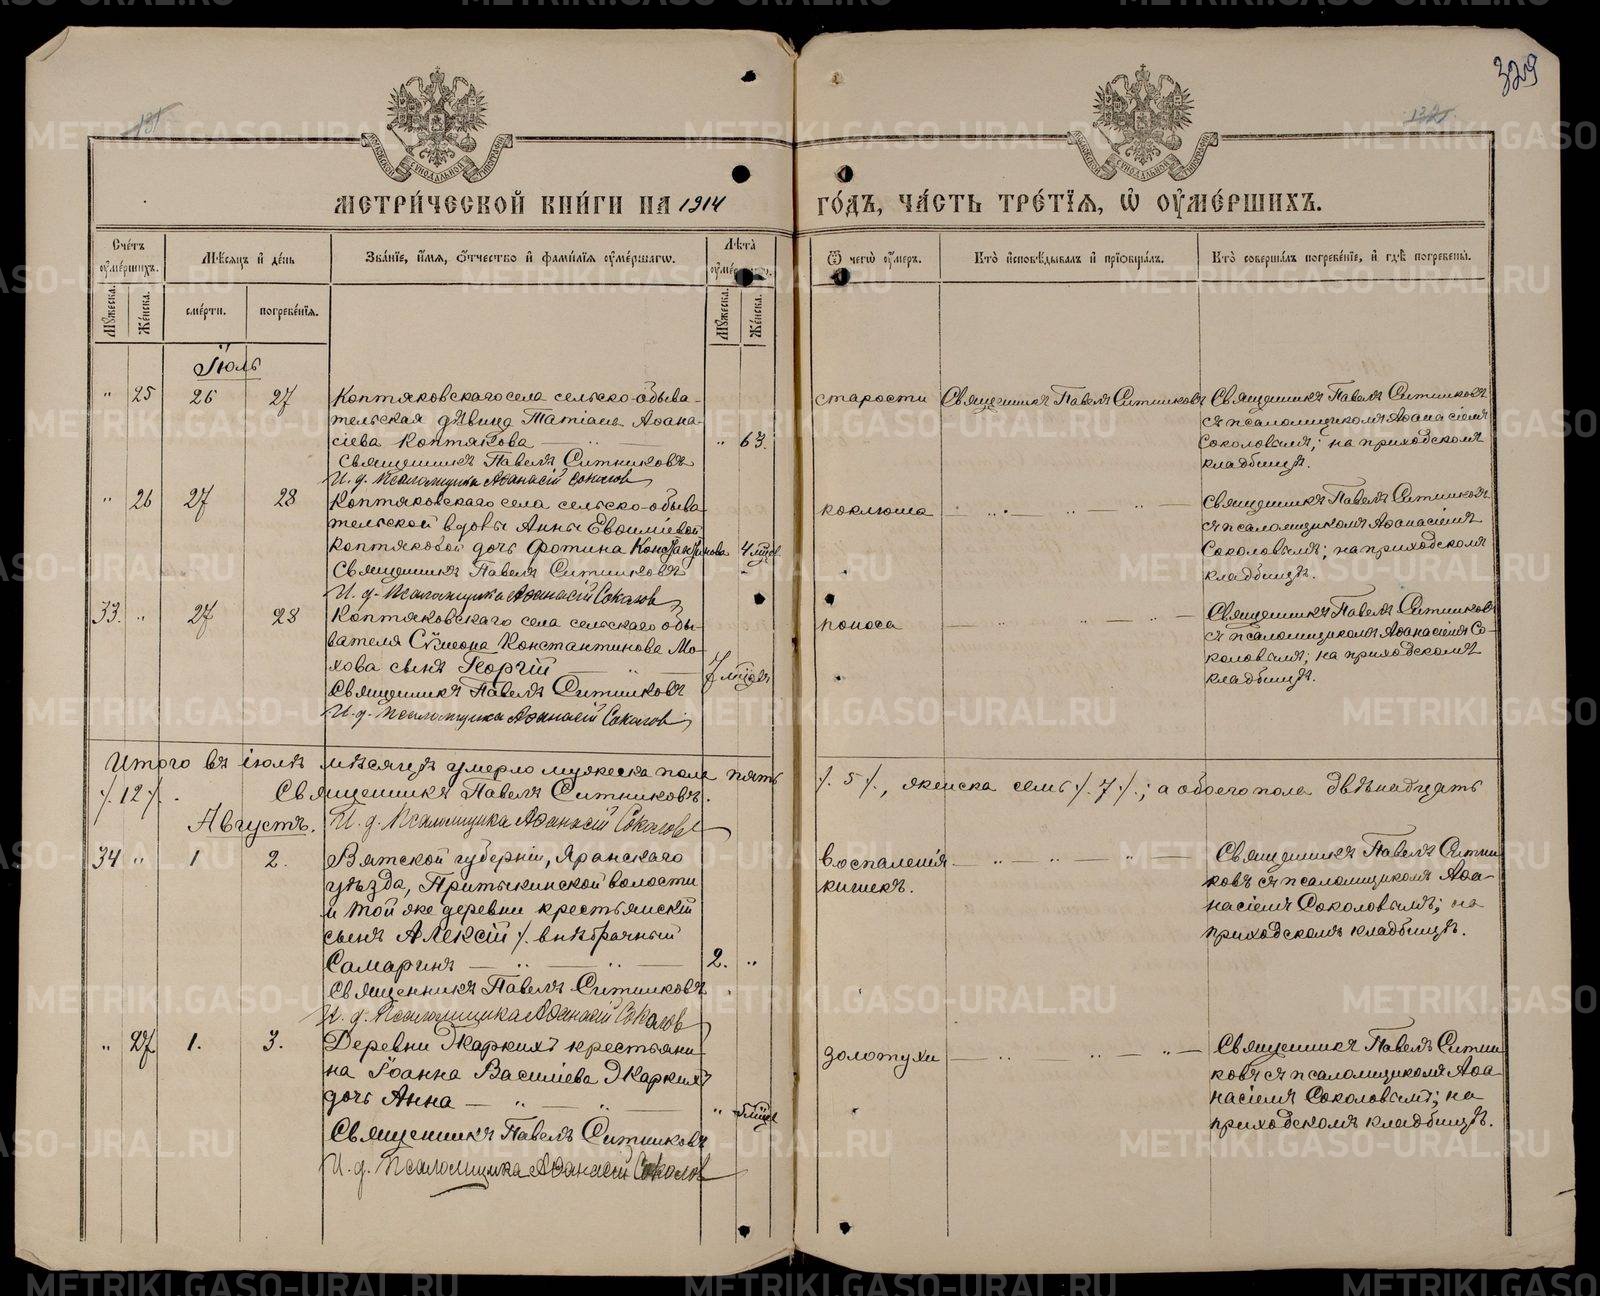 131
132
329
МЕТРИ́ЧЕСКОЙ КНИ́ГИ НА 1914 ГО́ДЪ, ЧА́СТЬ ТРЕ́ТІѦ, Ѡ҆ ОУ҆МЕ́РШИХЪ.
Сче́тъ оу҆ме́ршихъ.
Мѣ́сѧцъ и҆ де́нь
Зва́нїе, и҆́мѧ, ѻ҆́тчество и҆ фами́лїѧ оу҆ме́ршагѡ.
Лѣ́та
Ѿ чегѡ̀ оу҆́меръ.
Кто̀ и҆сповѣ́дывалъ и҆ прїѡбща́лъ.
Кто̀ соверша́лъ погребе́нїе, и҆ гдѣ̀ погребены̀.
Мꙋ́жеска.
Же́нска.
сме́рти.
погребе́нїѧ.
Мꙋ́жеска.
Же́нска.
Іюль
" 25 26 27 Коптяковскаго села сельско-обыва-
тельская дѣвица Татіана Аѳана-
сіева Коптякова — " 63.
Священникъ Павелъ Ситниковъ
И. д. Псаломщика Аѳанасій Соколов
старости Священникъ Павелъ Ситниковъ
Священникъ Павелъ Ситниковъ
съ псаломщикомъ Аѳанасіемъ
Соколовымъ; на приходскомъ
кладбищѣ.
" 26 27 28 Коптяковскаго села сельско-обыва-
тельской вдовы Анны Евѳиміевой
Коптяковой дочь Фотина Константинова 4 мѣсев.
Священникъ Павелъ Ситниковъ
И. д. Псаломщика Аѳанасій Соколов
коклюша — " — " — " —
Священникъ Павелъ Ситниковъ
съ псаломщикомъ Аѳанасіемъ
Соколовымъ; на приходскомъ
кладбищѣ.
33. " 27 28 Коптяковскаго села сельскаго обы-
вателя Сѷмеона Константинова Мо-
хова сынъ Георгій — " — 7 мѣсяцевъ
Священникъ Павелъ Ситниковъ
И. д. Псаломщика Аѳанасій Соколов
поноса — " — " — " —
Священникъ Павелъ Ситниковъ
съ псаломщикомъ Аѳанасіемъ Со-
коловымъ; на приходскомъ
кладбищѣ.
Итого въ іюлѣ мѣсяцѣ умерло мужеска пола пять /.5/., женска семь /.7/.; а обоего пола двѣнадцать
/.12/. Священникъ Павелъ Ситниковъ.
Августъ. И. д. Псаломщика Аѳанасій Соколов
34 " 1 2. Вятской губерніи, Яранскаго
уѣзда, Притыкинской волости
и той же деревни крестьянскій
сынъ Алексій /. внѣбрачный
Самаринъ — " — " — 2. "
Священникъ Павелъ Ситниковъ
И. д. Псаломщика Аѳанасій Соколов
воспаленія — " — " — " —
кишекъ.
Священникъ Павелъ Ситни-
ковъ съ псаломщикомъ Аѳа-
насіемъ Соколовымъ; на
приходскомъ кладбищѣ.
" 27 1. 3. Деревни Жаркихъ крестьяни-
на Іоанна Василіева Жаркихъ
дочь Анна — " — " — "
Священникъ Павелъ Ситниковъ
И. д. Псаломщика Аѳанасій Соколов
золотухи — " — " — " —
Священникъ Павелъ Ситни-
ковъ съ псаломщикомъ Аѳа-
насіемъ Соколовымъ; на
приходскомъ кладбищѣ.
METRIKI.GASO-URAL.RU